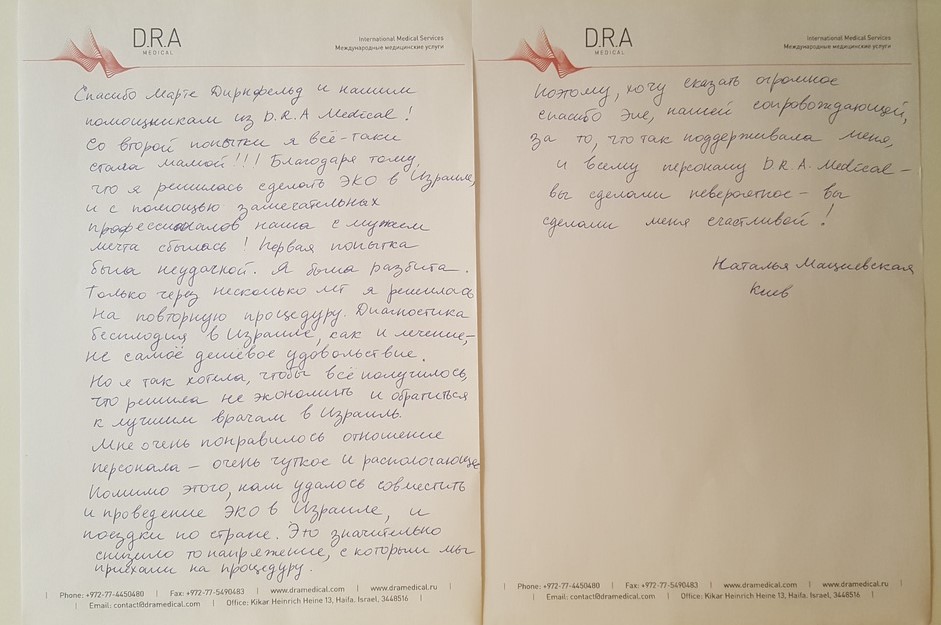 D.R.A
MEDICAL
International Medical Services
Международные медицинские услуги
Спасибо Марте Дирнфельд и нашим
помощникам из D.R.A Medical!
Со второй попытки я всё-таки
стала мамой!!! Благодаря тому,
что я решилась сделать ЭКО в Израиле,
и с помощью замечательных
профессионалов наша с мужем
мечта сбылась! Первая попытка
была неудачной. Я была разбита.
Только через несколько лет я решилась
на повторную процедуру. Диагностика
бесплодия в Израиле, как и лечение,-
не самоё дешевое удовольствие.
Но я так хотела, чтобы всё получилось,
что решила не экономить и обратиться
к лучшим врачам в Израиль.
Мне очень понравилось отношение
персонала – очень чуткое и распологающее
Помимо этого, нам удалось совместить
и проведение ЭКО в Израиле, и
поездки по стране. Это значительно
снизило то напряжение, с которым мы
приехали на процедуру.
Phone: +972-77-4450480 | Fax: +972-77-5490483 | www.dramedical.com | www.dramedical.ru
Email: contact@dramedical.com | Office: Kikar Heinrich Heine 13, Haifa, Israel, 3448516
D.R.A
MEDICAL
International Medical Services
Международные медицинские услуги
Поэтому, хочу сказать огромное
спасибо Эле, нашей сопровождающей,
за то, что так поддерживала меня,
и всему персоналу D.R.A. Medical –
вы сделали невероятное – вы
сделали меня счастливой!
Наталья Мациевская
Киев
Phone: +972-77-4450480 | Fax: +972-77-5490483 | www.dramedical.com | www.dramedical.ru
Email: contact@dramedical.com | Office: Kikar Heinrich Heine 13, Haifa, Israel, 3448516